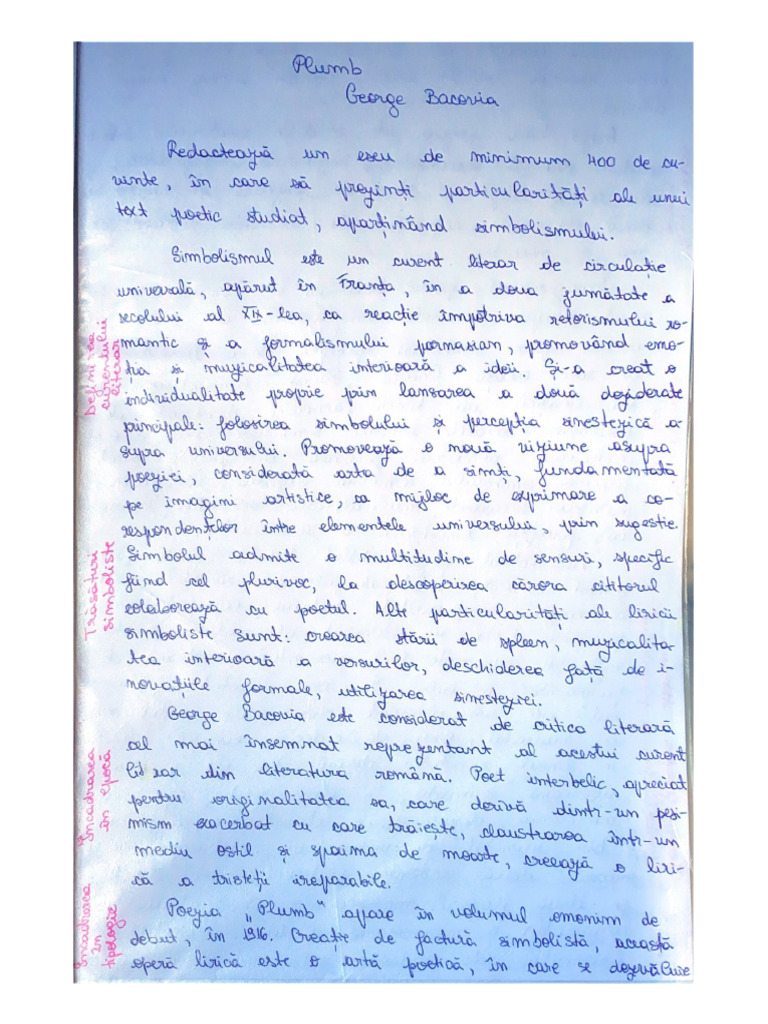 Plumb
George Bacovia
Redactează un eseu de minimum 400 de cu-
vinte, în care să prezinți particularități ale unui
text poetic studiat, aparținând simbolismului.
Simbolismul este un curent literar de circulație
universală, apărut în Franța, în a doua jumătate a
secolului al XIX-lea, ca reacție împotriva retorismului ro-
mantic și a formalismului parnasian, promovând emo-
ția și muzicalitatea interioară a ideii. Și-a creat o
individualitate proprie prin lansarea a două deziderate
principale: folosirea simbolului și percepția sinestezică a-
supra universului. Promovează o nouă viziune asupra
poeziei, considerată arta de a simți, fundamentată
pe imagini artistice, ca mijloc de exprimare a co-
respondentelor între elementele universului, prin sugestie.
Simbolul admite o multitudine de sensuri, specific
fiind cel plurivoc, la descoperirea cărora cititorul
colaborează cu poetul. Alte particularități ale liricii
simboliste sunt: crearea stării de spleen, muzicalita-
tea interioară a versurilor, deschiderea față de i-
novațiile formale, utilizarea sinesteziei.
George Bacovia este considerat de critica literară
cel mai însemnat reprezentant al acestui curent
literar din literatura română. Poet interbelic, apreciat
pentru originalitatea sa, care derivă dintr-un pesi-
mism exacerbat cu care trăiește, claustrarea într-un
mediu ostil și spaima de moarte, creează o liri-
că a tristeții ireparabile.
Poezia "Plumb" apare în volumul omonim de
debut, în 1916. Creație de factură simbolistă, această
operă lirică este o artă poetică, în care se dezvăluie
Definirea
curentului
literar
Trăsături
simboliste
Încadrarea
în epocă
Încadrarea
în
tipologie